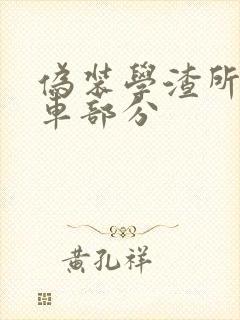 偽裝學渣所
車部分
黃孔祥